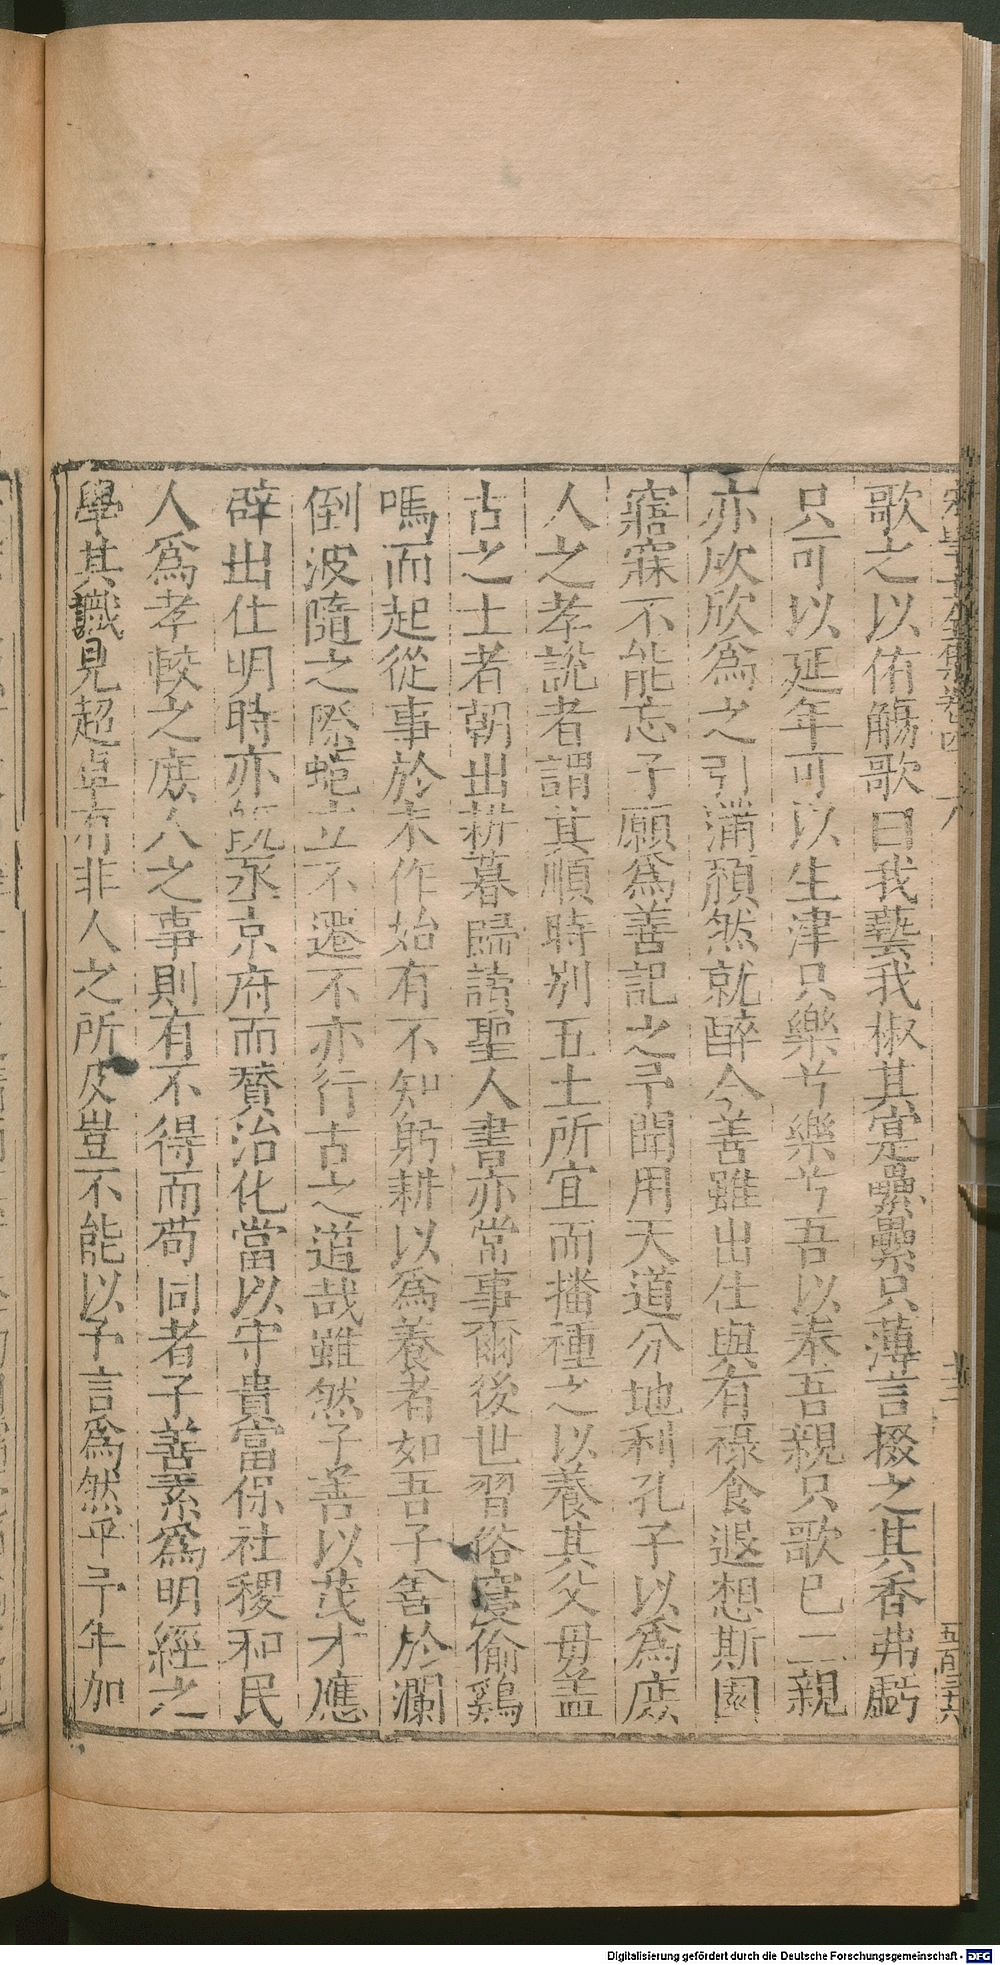 歌之以侑觴歌曰我藝我椒其寔纍纍只薄言掇之其香弗虧
只可以延年可以生津只樂兮樂兮吾以奉吾親只歌已二親
亦欣欣為之引滿頹然就醉今善雖出仕與有祿食遐想斯園
寤寐不能忘子願為善記之予聞用天道分地利孔子以為庶
人之孝說者謂其順時別五土所宜而播種之以養其父毋盖
古之士者朝出耕暮歸讀聖人書亦常事爾後世習俗寖偷鷄
鳴而起從事於末作始有不知躬耕以為養者如吾子善於瀾
倒波隨之際 立不遷不亦行古之道哉雖然子善以茂才應
辟出仕明時亦既丞京府而賛治化當以守貴富保社稷和民
人為孝較之庶人之事則有不得而苟同者子善素為明經之
學其識見超卓有非人之所及豈不能以予言為然乎予年加
五百三十六
Digitalisierung gefördert durch die Deutsche Forschungsgemeinschaft - DFG